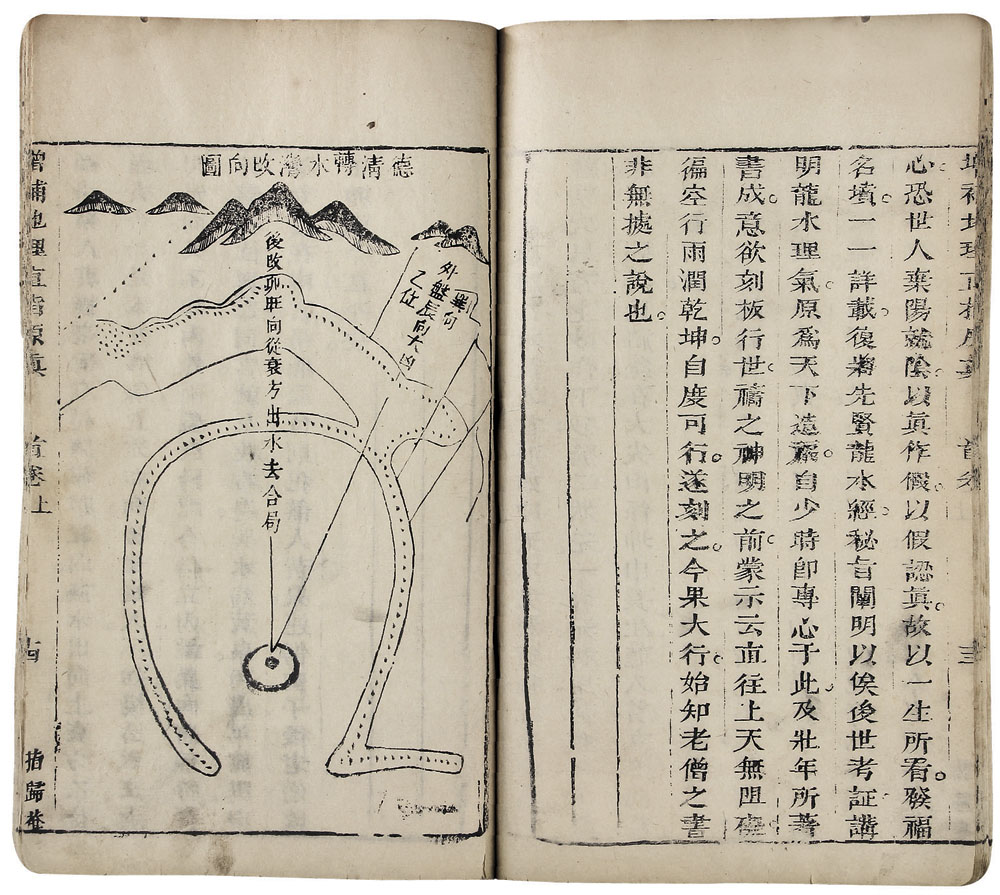 增補地理直指原真　首卷　三
心恐世人棄陽就陰以眞作假以假認眞故以一生所看發福
名墳一一詳載復將先賢龍水經秘旨闡明以俟後世考証講
明龍水理氣原爲天下造福自少時卽專心于此及壯年所著
書成意欲刻板行世禱之神明之前蒙示云直往上天無阻礙
徧空行雨潤乾坤自度可行遂刻之今果大行始知老僧之書
非無據之說也
德清轉水灣改向圖
巽向
外盤辰向大凶
乙位
後改卯旺向從衰方出水去合局
增補地理直指原眞　首卷上　十四　指歸菴